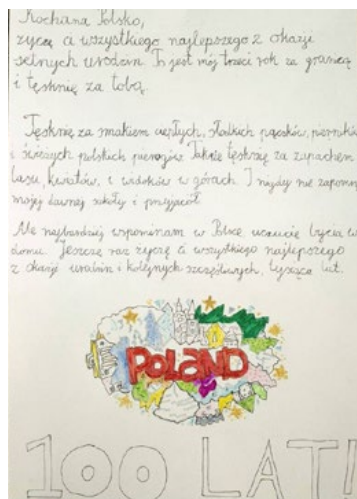 Kochana Polsko,
życzę ci wszystkiego najlepszego z okazji
setnych urodzin. To jest mój trzeci rok za granicą
i tęsknię za tobą.
Tęsknię za smakiem ciepłych, słodkich pączków, pierników
i świeżych polskich pierogów. Także tęsknię za zapachem
lasu, kwiatów, i widoków w górach. I nigdy nie zapomnę
mojej dawnej szkoły i przyjaciół.
Ale najbardziej wspominam w Polsce uczucie bycia w
domu. Jeszcze raz życzę ci wszystkiego najlepszego
z okazji urodzin i kolejnych szczęśliwych, tysiąca lat.
POLAND
100 LAT!